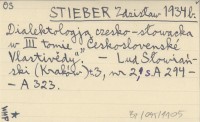 03 STIEBER Zdzisław 1934 b.
Dialektologja czesko-słowacka
w III tomie „Československé
Vlastivědy" – Lud Słowiań-
ski (Kraków) t.3, nr 2, s. A 294 –
– A 323.